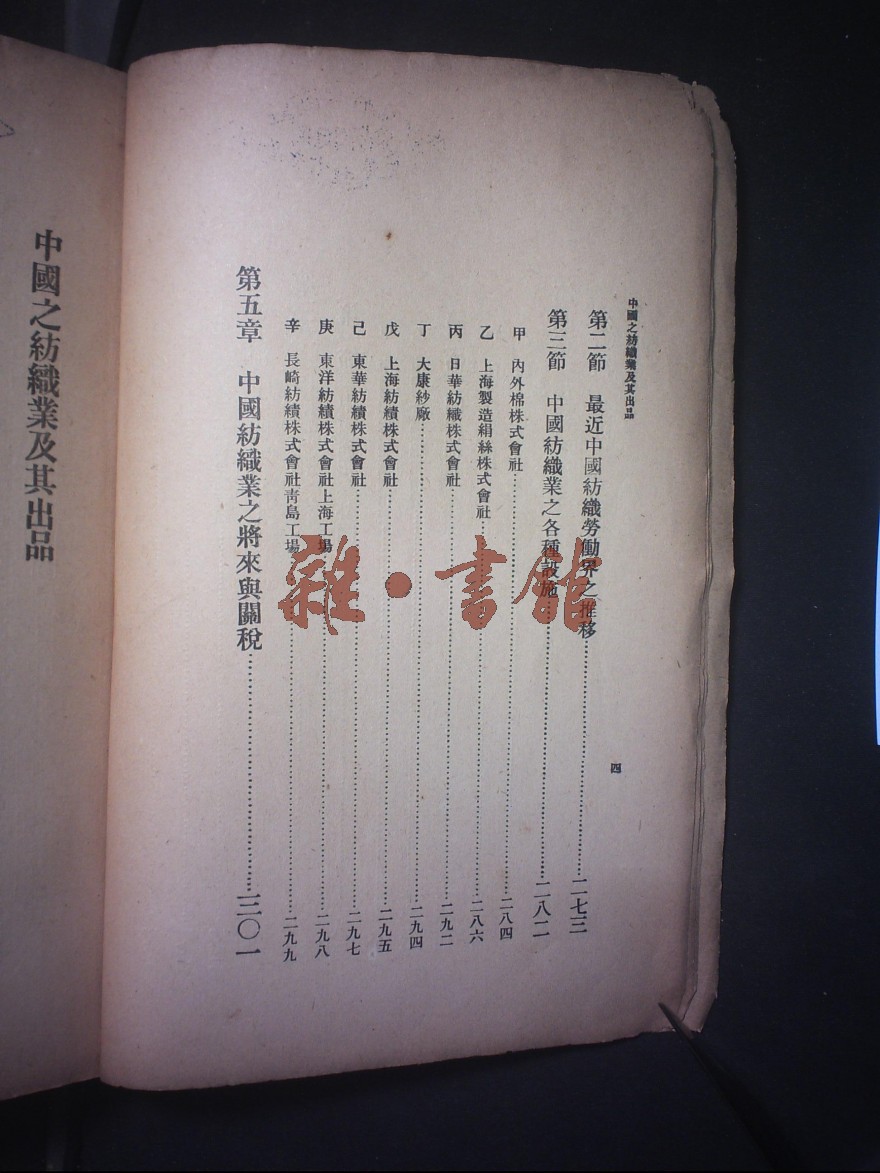 中國之紡織業及其出品
四
第二節 最近中國紡織勞働界之推移……二七三
第三節 中國紡織業之各種設施……二八二
甲 內外棉株式會社……二八四
乙 上海製造絹絲株式會社……二八六
丙 日華紡織株式會社……二九二
丁 大康紗廠……二九四
戊 上海紡績株式會社……二九五
己 東華紡績株式會社……二九七
庚 東洋紡績株式會社上海工場……二九八
辛 長崎紡績株式會社靑島工場……二九九
第五章 中國紡織業之將來與關稅……三〇一
中國之紡織業及其出品
雜·書館